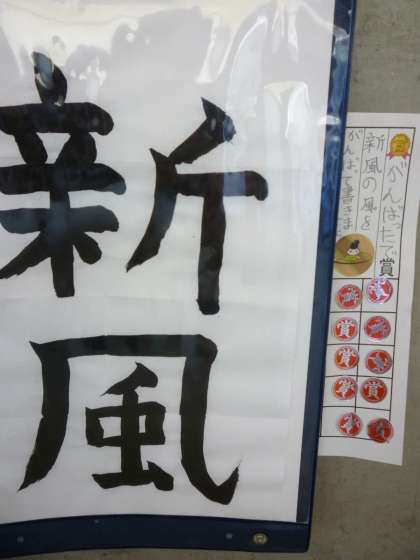 新風
がんばったで賞
新風の風を
がんばって書きま
賞
賞
賞
賞
賞
賞
賞
賞
賞
賞